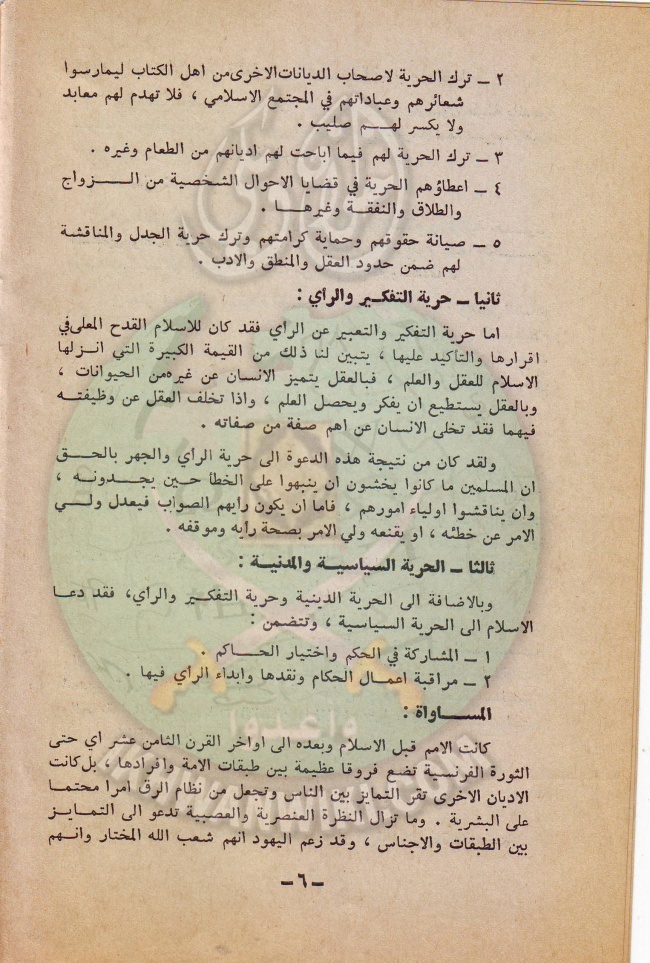 ٢ ــ ترك الحرية لاصحاب الديانات الاخرى من اهل الكتاب ليمارسوا
شعائرهم وعباداتهم في المجتمع الاسلامي ، فلا تهدم لهم معابد
ولا يكسر لهـــم صليب .
٣ ــ ترك الحرية لهم فيما اباحت لهم اديانهم من الطعام وغيره .
٤ ــ اعطاؤهم الحرية في قضايا الاحوال الشخصية من الـــزواج
والطلاق والنفقـة وغيرهـا .
٥ ــ صيانة حقوقهم وحماية كرامتهم وترك حرية الجدل والمناقشة
لهم ضمن حدود العقل والمنطق والادب .
ثانيا ــ حرية التفكـير والرأي :
اما حرية التفكير والتعبير عن الرأي فقد كان للاسلام القدح المعلى في
اقرارها والتأكيد عليها ، يتبين لنا ذلك من القيمة الكبيرة التي انـزلها
الاسلام للعقل والعلم ، فبالعقل يتميز الانسان عن غيره من الحيوانات ،
وبالعقل يستطيع ان يفكر ويحصل العلم ، واذا تخلف العقل عن وظيفتـه
فيهما فقد تخلى الانسان عن اهم صفة من صفاته .
ولقد كان من نتيجة هذه الدعوة الى حرية الرأي والجهر بالحـق
ان المسلمين ما كانوا يخشون ان ينبهوا على الخطأ حين يجـدونـه ،
وان يناقشوا اولياء امورهم ، فاما ان يكون رأيهم الصواب فيعدل ولـي
الامر عن خطئه ، او يقنعه ولي الامر بصحة رأيه وموقفه .
ثالثا ــ الحرية السياسيـة والمدنيـة :
وبالاضافة الى الحرية الدينية وحرية التفكـير والرأي، فقد دعـا
الاسلام الى الحرية السياسية ، وتتضمن :
١ ــ المشاركة في الحكم واختيار الحـاكم .
٢ ــ مراقبة اعمال الحكام ونقدها وابداء الرأي فيها .
المســاواة :
كانت الامم قبل الاسلام وبعده الى اواخر القرن الثامن عشر اي حتى
الثورة الفرنسية تضع فروقا عظيمة بين طبقات الامة وافرادها ، بل كانت
الاديان الاخرى تقر التمايز بين الناس وتجعل من نظام الرق امرا محتما
على البشرية . وما تزال النظرة العنصرية والعصبية تدعو الى التمـايز
بين الطبقات والاجناس ، وقد زعم اليهود انهم شعب الله المختار وانهم
ــ ٦ ــ
وأعدوا